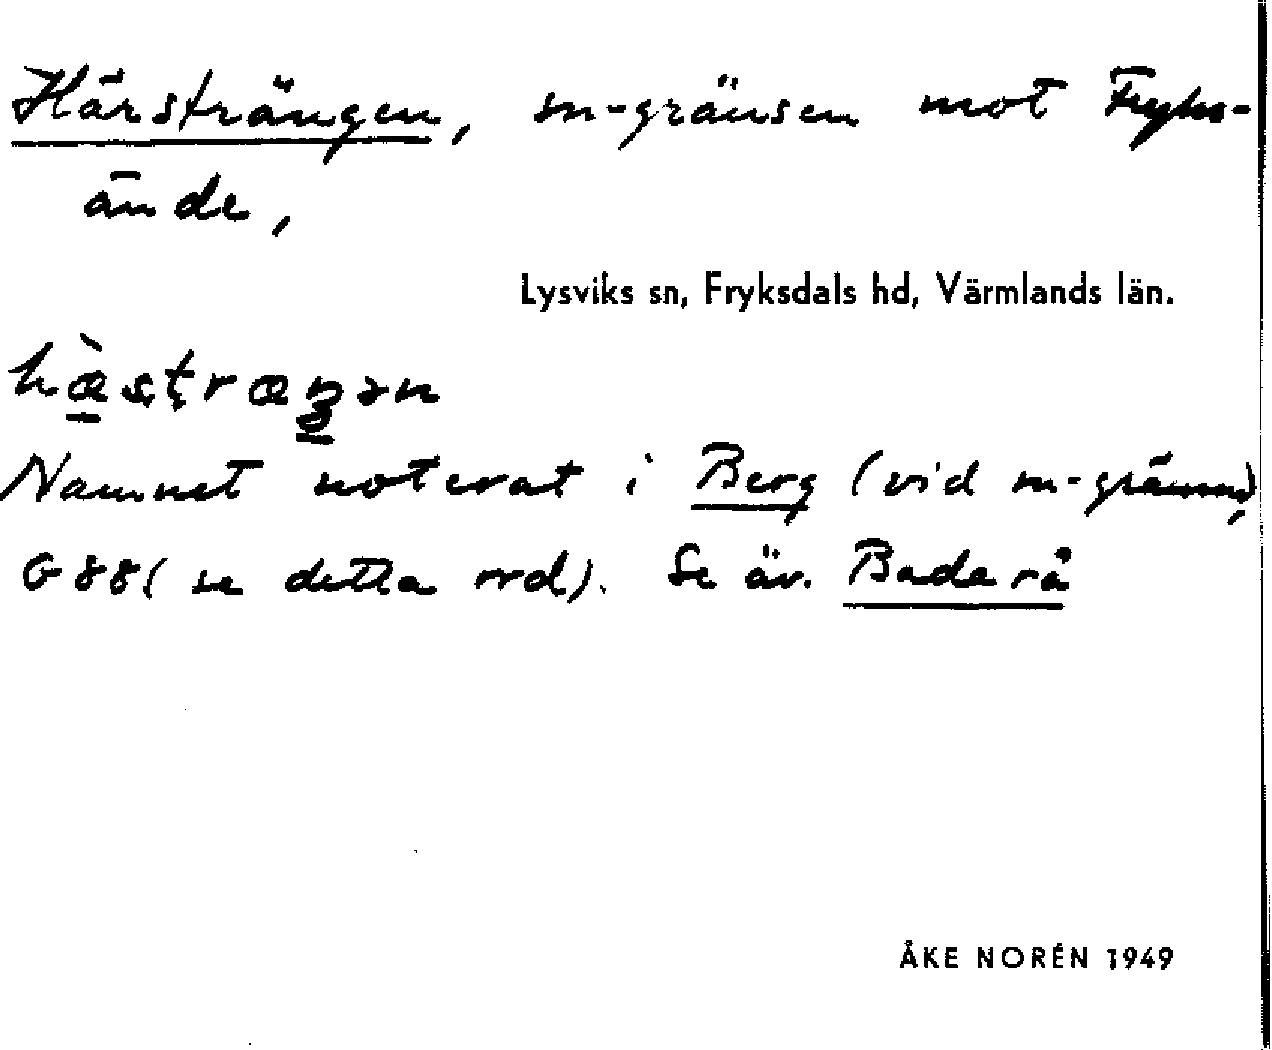 Härsträngen, sn-gränsen mot Fryks-
ände,
Lysviks sn, Fryksdals hd, Värmlands län.
Namnet noterat i Berg (vid sn-gränsen)
G88 (se detta ord). Se äv. Badarå
ÅKE NORÉN 1949